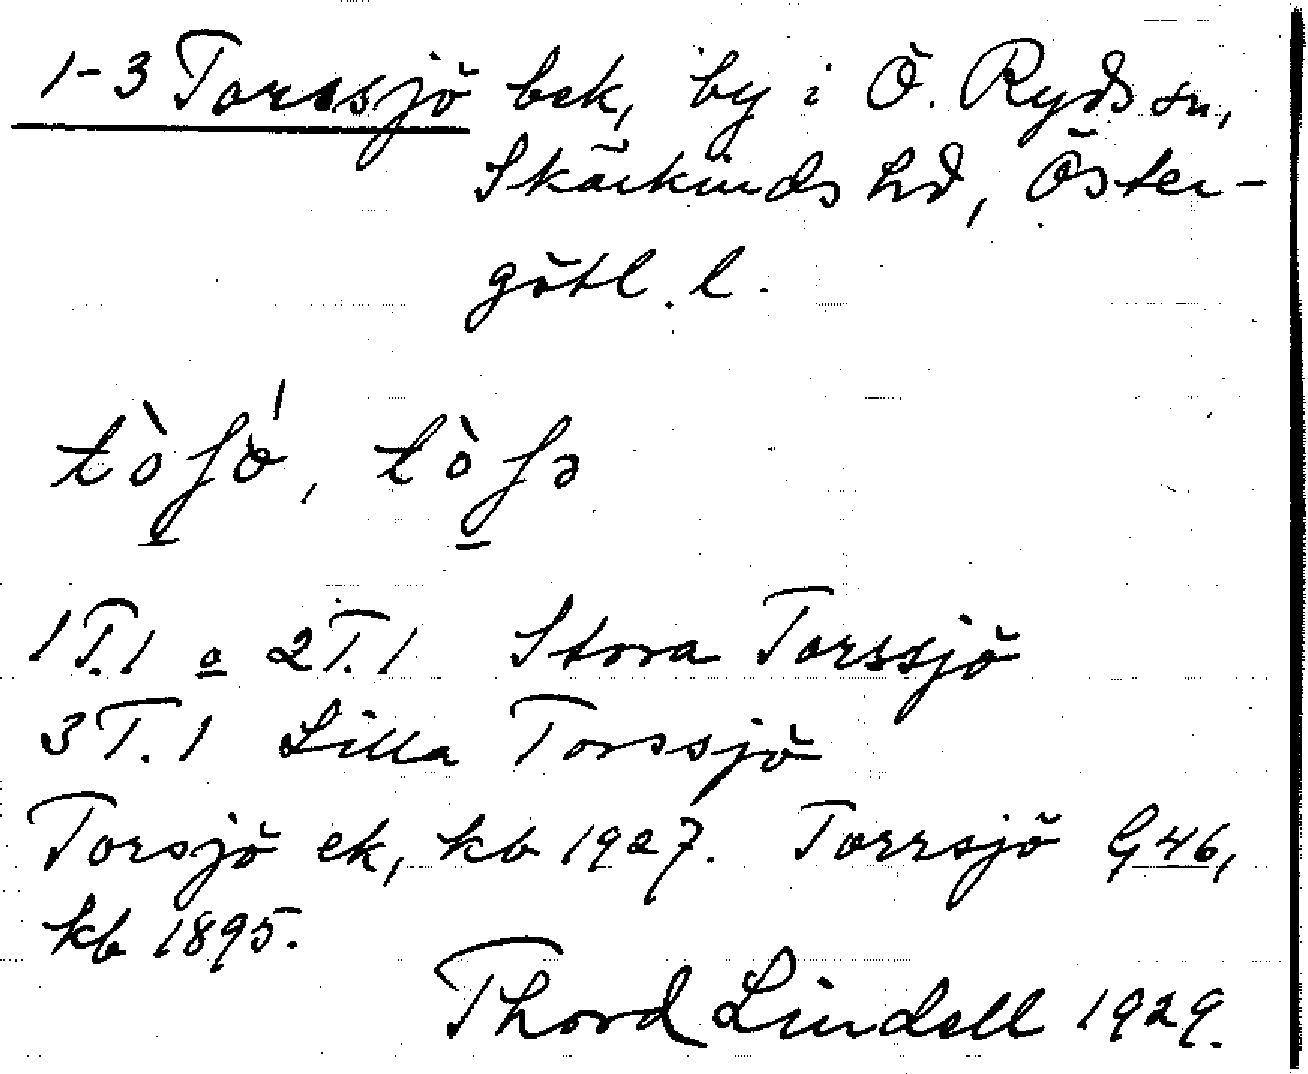 1-3 Torssjö bek, by i Ö. Ryds sn,
Skärkinds hd, Öster-
götl. l.
tòʃö́, tòʃə
1T.1 o 2T.1 Stora Torssjö
3T.1 Lilla Torssjö
Torsjö ek, kb 1927. Torrsjö G 46,
kb 1895.
Thord Lindell 1929.